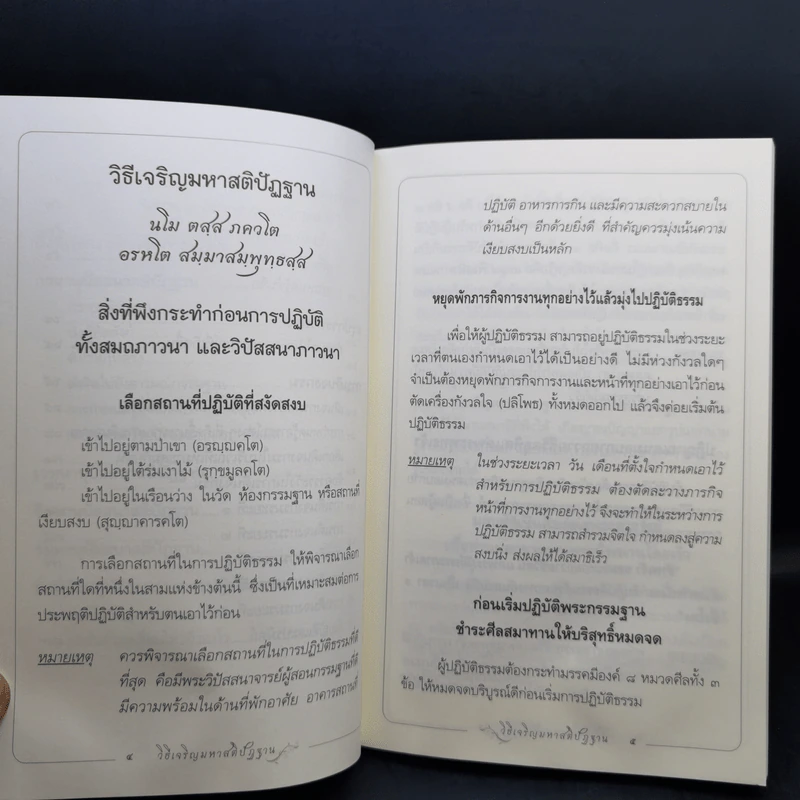 วิธีเจริญมหาสติปัฏฐาน
นโม ตสฺส ภควโต
อรหโต สมฺมาสมฺพุทฺธสฺส
สิ่งที่พึงกระทำก่อนการปฏิบัติ
ทั้งสมถภาวนา และวิปัสสนาภาวนา
เลือกสถานที่ปฏิบัติที่สงัดสงบ
เข้าไปอยู่ตามป่าเขา (อรญฺญคโต)
เข้าไปอยู่ใต้ร่มเงาไม้ (รุกฺขมูลคโต)
เข้าไปอยู่ในเรือนว่าง ในวัด ห้องกรรมฐาน หรือสถานที่
เงียบสงบ (สุญฺญาคารคโต)
การเลือกสถานที่ในการปฏิบัติธรรม ให้พิจารณาเลือก
สถานที่ใดที่หนึ่งในสามแห่งข้างต้นนี้ ซึ่งเป็นที่เหมาะสมต่อการ
ประพฤติปฏิบัติสำหรับตนเอาไว้ก่อน
หมายเหตุ ควรพิจารณาเลือกสถานที่ในการปฏิบัติธรรมที่ดี
ที่สุด คือมีพระวิปัสสนาจารย์ผู้สอนกรรมฐานที่ดี
มีความพร้อมในด้านที่พักอาศัย อาคารสถานที่
๔ วิธีเจริญมหาสติปัฏฐาน
ปฏิบัติ อาหารการกิน และมีความสะดวกสบายใน
ด้านอื่นๆ อีกด้วยยิ่งดี ที่สำคัญควรมุ่งเน้นความ
เงียบสงบเป็นหลัก
หยุดพักภารกิจการงานทุกอย่างไว้แล้วมุ่งไปปฏิบัติธรรม
เพื่อให้ผู้ปฏิบัติธรรม สามารถอยู่ปฏิบัติธรรมในช่วงระยะ
เวลาที่ตนเองกำหนดเอาไว้ได้เป็นอย่างดี ไม่มีห่วงกังวลใดๆ
จำเป็นต้องหยุดพักภารกิจการงานและหน้าที่ทุกอย่างเอาไว้ก่อน
ตัดเครื่องกังวลใจ (ปลิโพธ) ทั้งหมดออกไป แล้วจึงค่อยเริ่มต้น
ปฏิบัติธรรม
หมายเหตุ ในช่วงระยะเวลา วัน เดือนที่ตั้งใจกำหนดเอาไว้
สำหรับการปฏิบัติธรรม ต้องตัดละวางภารกิจ
หน้าที่การงานทุกอย่างไว้ จึงจะทำให้ในระหว่างการ
ปฏิบัติธรรม สามารถสำรวมจิตใจ กำหนดลงสู่ความ
สงบนิ่ง ส่งผลให้ได้สมาธิเร็ว
ก่อนเริ่มปฏิบัติพระกรรมฐาน
ชำระศีลสมาทานให้บริสุทธิ์หมดจด
ผู้ปฏิบัติธรรมต้องกระทำมรรคมีองค์ ๘ หมวดศีลทั้ง ๓
ข้อ ให้หมดจดบริบูรณ์ดีก่อนเริ่มการปฏิบัติธรรม
วิธีเจริญมหาสติปัฏฐาน ๕